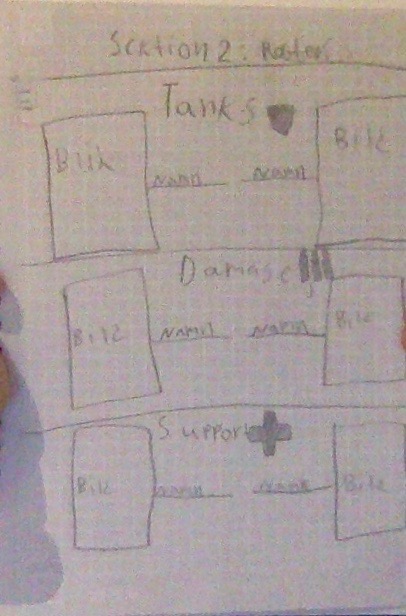 Section 2: Roster
Tanks
Bild Namn Namn Bild
Damage
Bild Namn Namn Bild
Support
Bild Namn Namn Bild